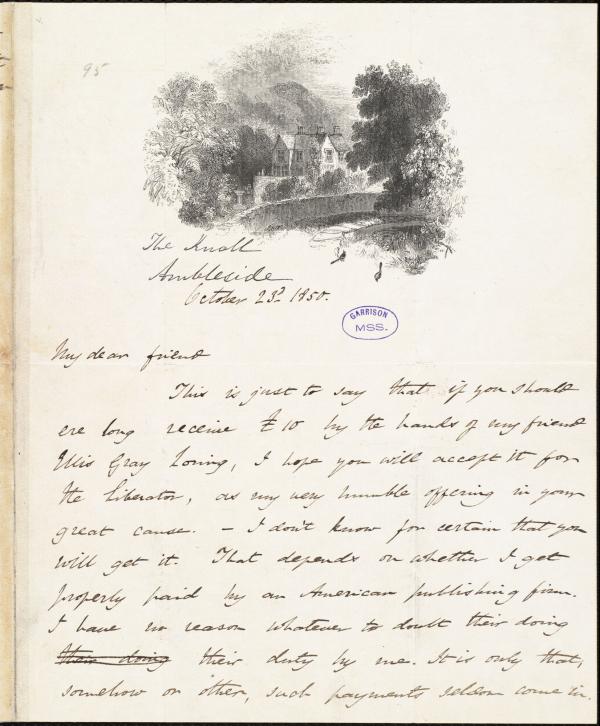 95
The Knoll
Ambleside
October 23d 1850.
GARRISON
MSS.
My dear friend
This is just to say that if you should
ere long receive £10 by the hands of my friend
Ellis Gray Loring, I hope you will accept it for
the Liberator, as my very humble offering in your
great cause. – I don't know for certain that you
will get it. That depends on whether I get
properly paid by an American publishing firm.
I have no reason whatever to doubt their doing
their doing their duty by me. It is only that,
somehow or other, such payments seldom come in.